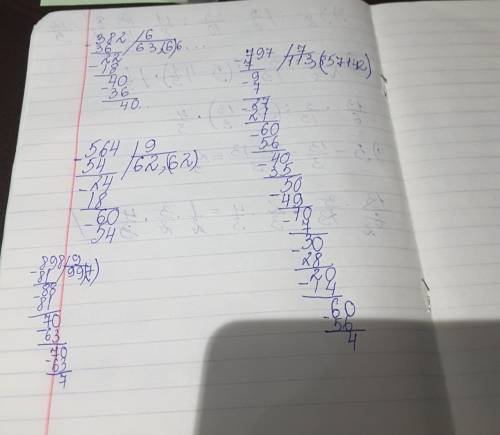 -382 /6
36 /63,(6)6...
-22
18
-40
-36
40..
-797 /7
-7 /113,(857142)
-9
7
-27
21
-60
56
-40
35
-50
-49
-10
7
-30
-28
-20
-14
-60
-56
4
-564 /9
54 /62,(62)
-24
18
-60
54
-898 /9
-81 /99,
-88
-81
70
-63
-70
-63
7